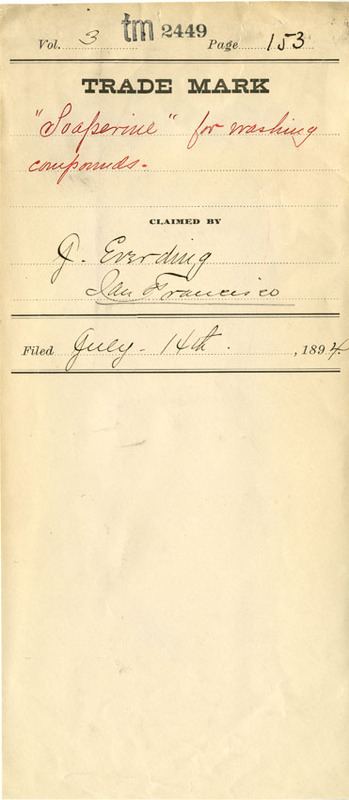 Vol. 3 tm 2449 Page 153
TRADE MARK
"Soaperine" for washing
compounds.
CLAIMED BY
J. Everding
San Francisco
Filed July. 14th. , 1894.